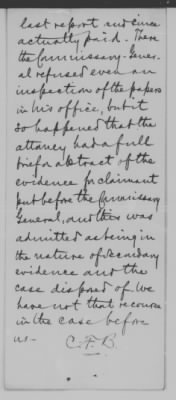 last report and since
actually paid. There
the Commissary-Gener-
al refused even an
inspection of the papers
in his office, but it
so happened that the
attorney had a full
brief or abstract of the
evidence for claimant
put before the Commissary
General, and this was
admitted as being in
the nature of secondary
evidence and the
case disposed of. We
have not that recourse
in the case before
us.
C.F.B.